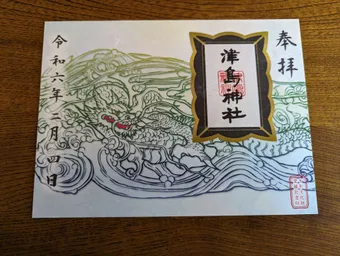 奉拝
津島神社
令和六年二月四日